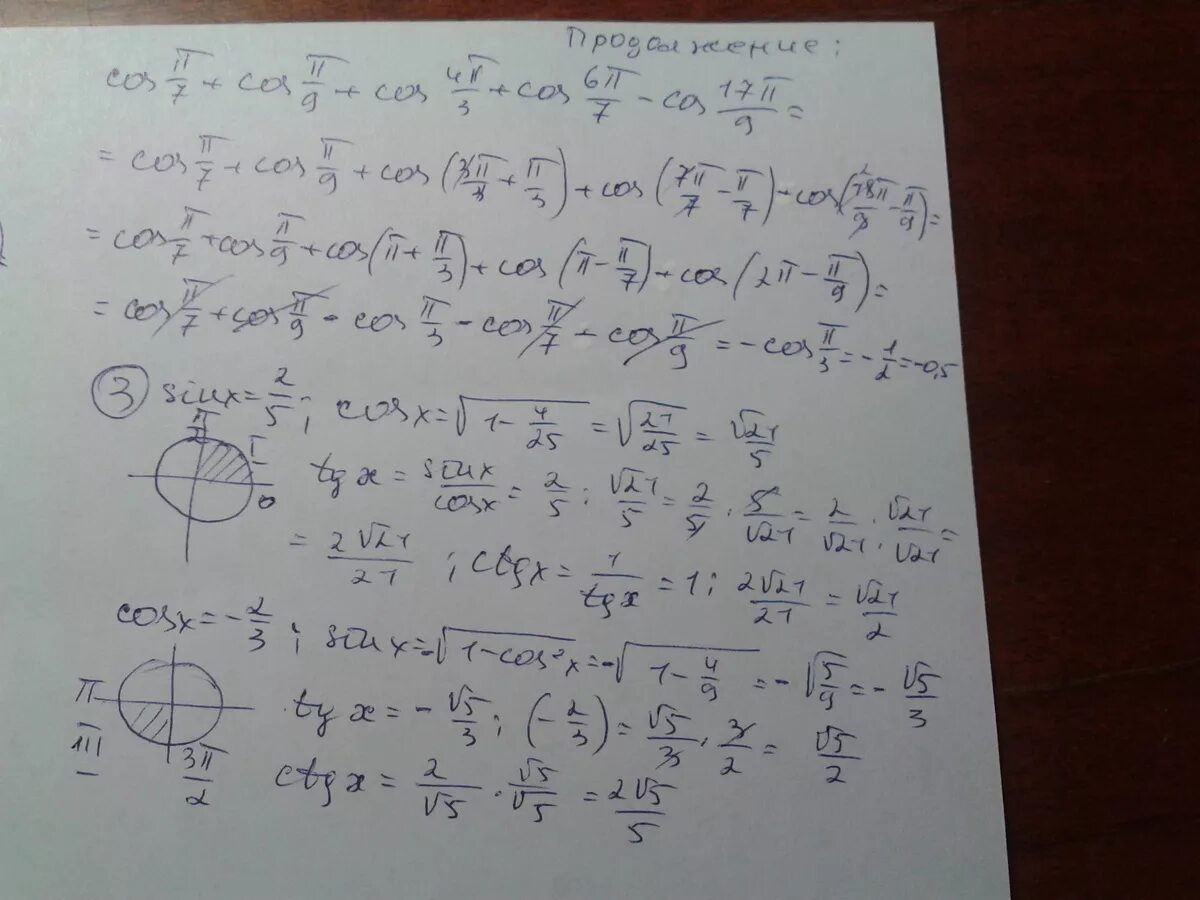 Продолжение:
cos π/7 + cos π/9 + cos 4π/3 + cos 6π/7 - cos 17π/9 =
= cos π/7 + cos π/9 + cos(3π/3 + π/3) + cos(7π/7 - π/7) - cos(18π/9 - π/9) =
= cos π/7 + cos π/9 + cos(π + π/3) + cos(π - π/7) + cos(2π - π/9) =
= cos π/7 + cos π/9 - cos π/3 - cos π/7 + cos π/9 = - cos π/3 = - 1/2 = -0,5
③ sin x = 2/5 ; cos x = √(1 - 4/25) = √(21/25) = √21/5
π/2
I
0
tg x = sin x/cos x = 2/5 : √21/5 = 2/5 · 5/√21 = 2/√21 · √21/√21 =
= 2√21/21 ; ctg x = 1/tg x = 1 : 2√21/21 = √21/2
cos x = - 2/3 ; sin x = -√(1 - cos² x) = -√(1 - 4/9) = - √(5/9) = - √5/3
π
III
3π/2
tg x = - √5/3 : (- 2/3) = √5/3 · 3/2 = √5/2
ctg x = 2/√5 · √5/√5 = 2√5/5